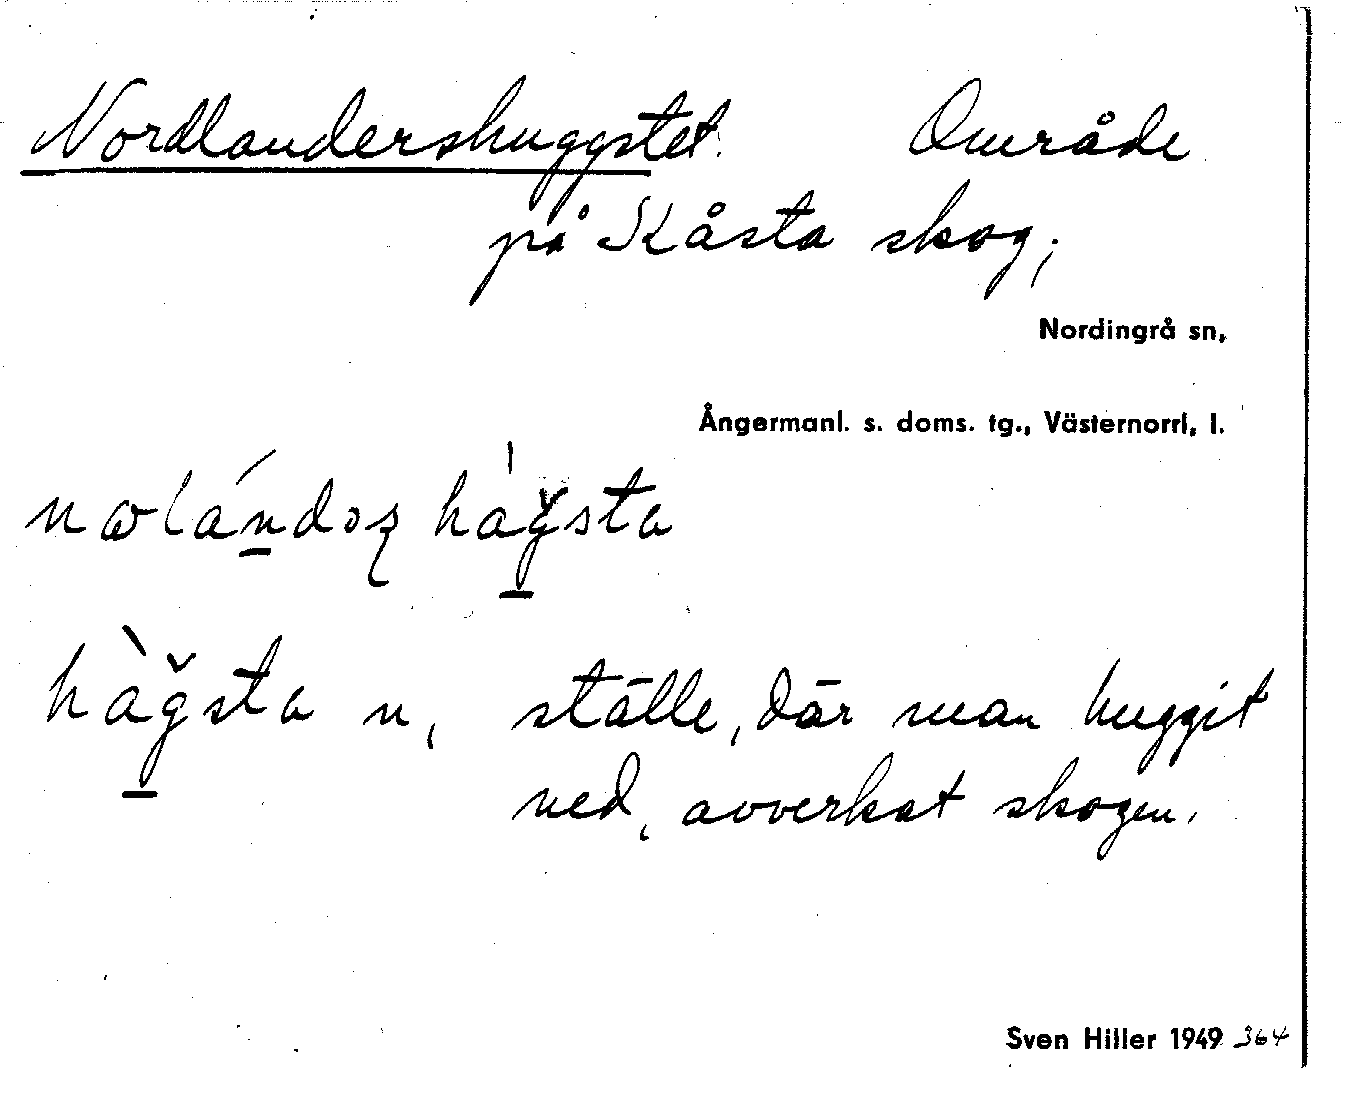 Nordlandershuggstet. Område
på Kåsta skog;
Nordingrå sn,
Ångermanl. s. doms. tg., Västernorrl. l.
hàgsta n, ställe, där man huggit
ned, avverkat skogen.
Sven Hiller 1949 364